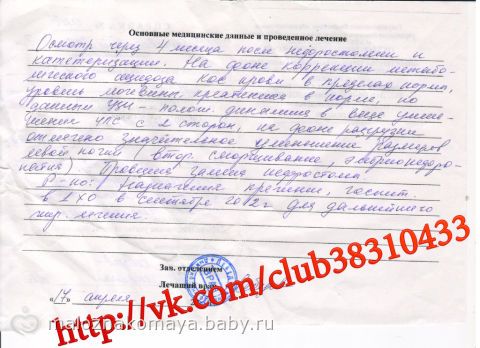 Основные медицинские данные и проведенное лечение
Осмотр через 4 месяца после нефростомии и
катетеризации. На фоне коррекции метабо-
лического ацидоза КОС крови в пределах нормы,
уровень мочевины, креатинина в норме, по
данным УЗИ – полож. динамика в виде умень-
шения ЧЛС с 2 сторон, на фоне разгрузки
отмечено значительное уменьшение размеров
левой почки втор. сморщивание,
Произведена нефростом
Р-но: наблюдение
в сентябре 2012г для дальнейшего
хир. лечения.
Зав. отделением
Лечащий врач
«17» апреля
http://vk.com/club38310433
maloznakomaya.baby.ru